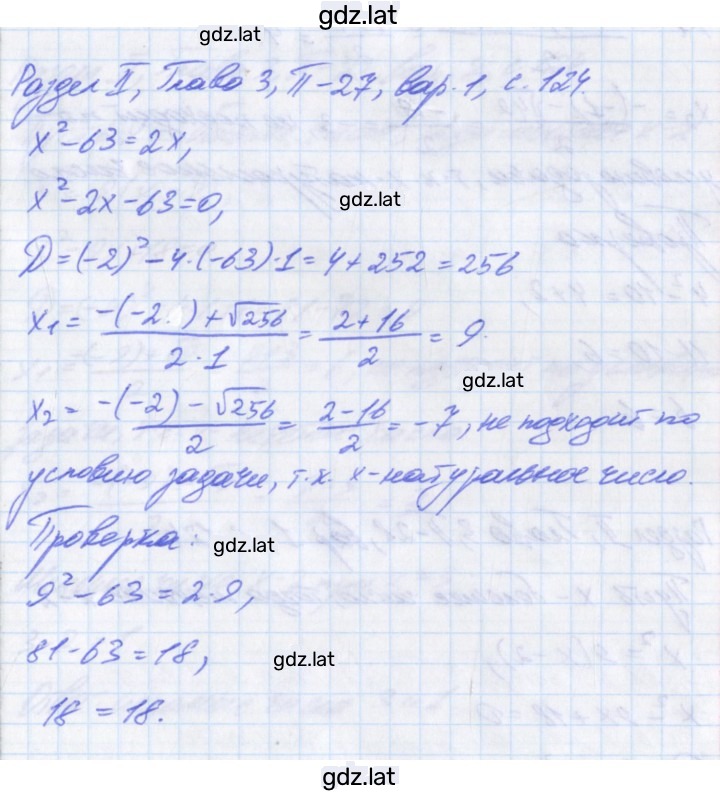 gdz.lat
gdz.lat
Раздел II, Глава 3, П-27, вар. 1, с. 124
x² - 63 = 2x,
x² - 2x - 63 = 0,
gdz.lat
D = (-2)² - 4·(-63)·1 = 4 + 252 = 256
x₁ = (-(-2) + √256)/(2·1) = (2+16)/2 = 9.
gdz.lat
x₂ = (-(-2) - √256)/2 = (2-16)/2 = -7, не подходит по
условию задачи, т.к. x-натуральное число.
Проверка:
gdz.lat
9² - 63 = 2·9,
81 - 63 = 18,
gdz.lat
18 = 18.
gdz.lat